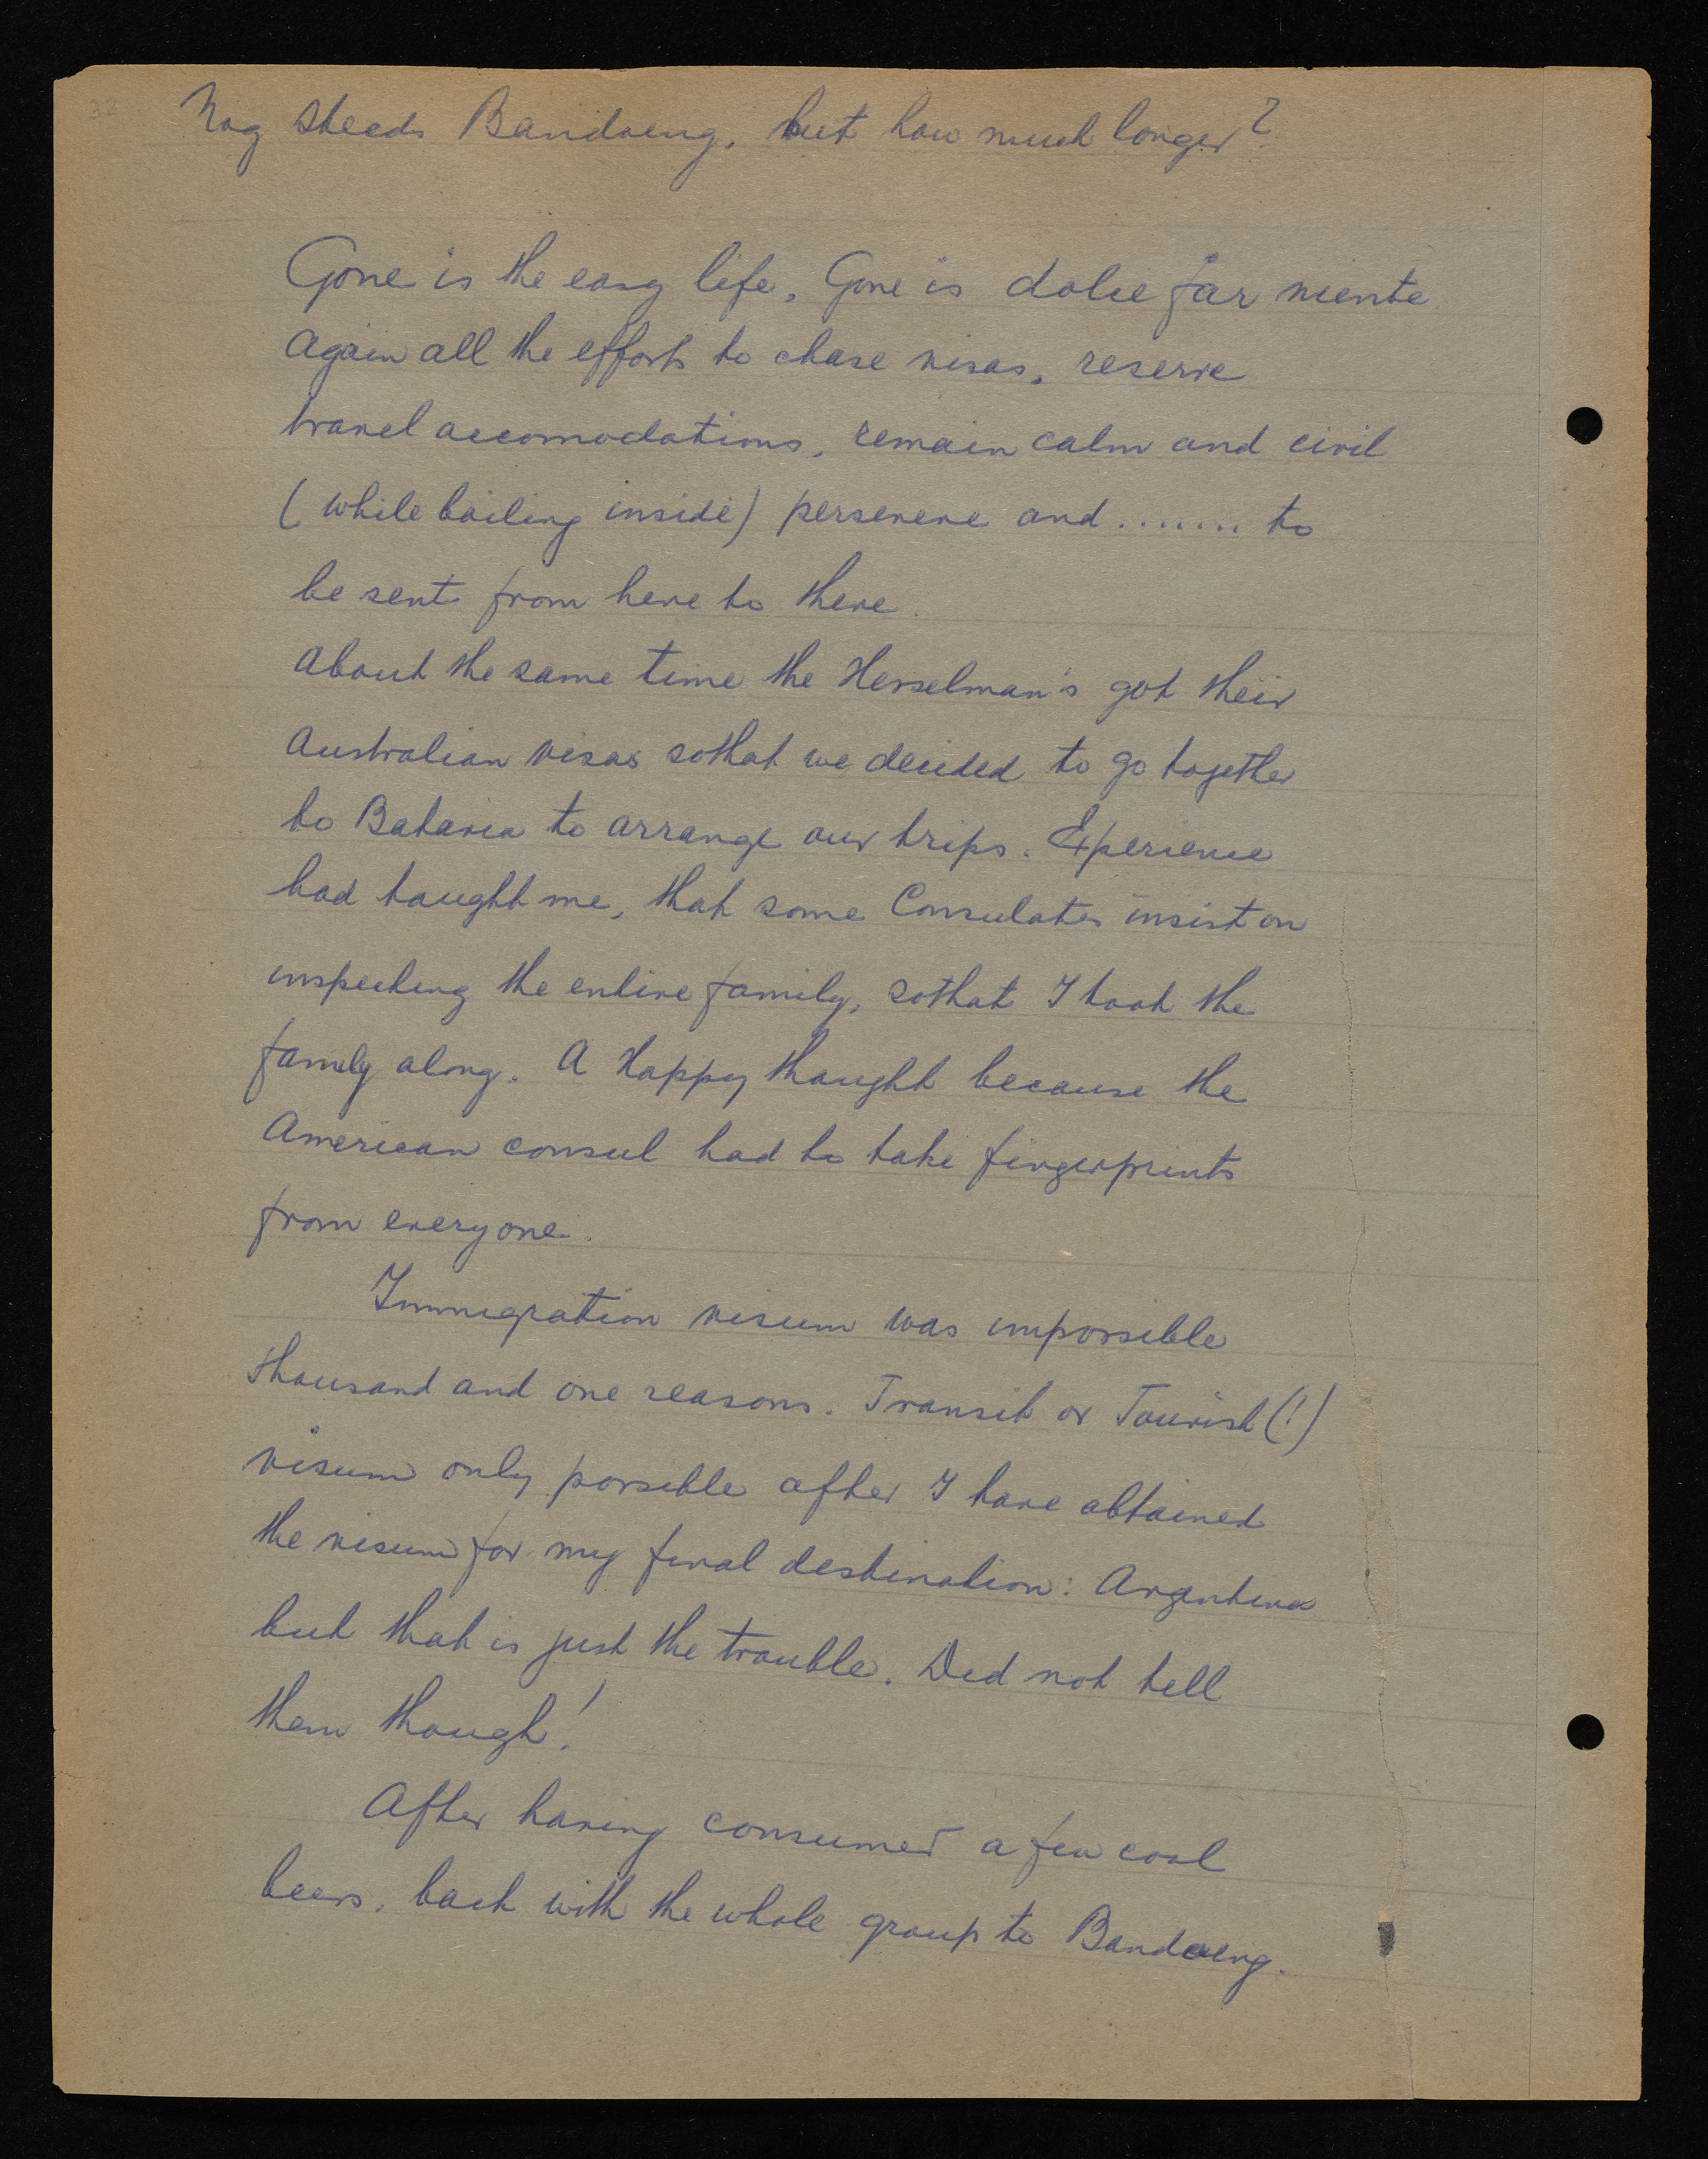 Nog steeds Bandoeng, but how much longer?
Gone is the easy life. Gone is dolce far niente
Again all the efforts to chase visas, reserve
travel accomodations, remain calm and civil
(while boiling inside) persevere and ........ to
be sent from here to there.
About the same time the Herselman's got their
Australian visas sothat we decided to go together
to Batavia to arrange our trips. Experience
had taught me, that some Consulates insist on
inspecting the entire family, sothat I took the
family along. A Happy thought because the
American consul had to take fingerprints
from everyone.
Immigration visum was impossible
thousand and one reasons. Transit or Tourist (!)
visum only possible after I have obtained
the visum for my final destination: Argentina
but that is just the trouble. Did not tell
them though!
After having consumed a few cool
beers, back with the whole group to Bandoeng.